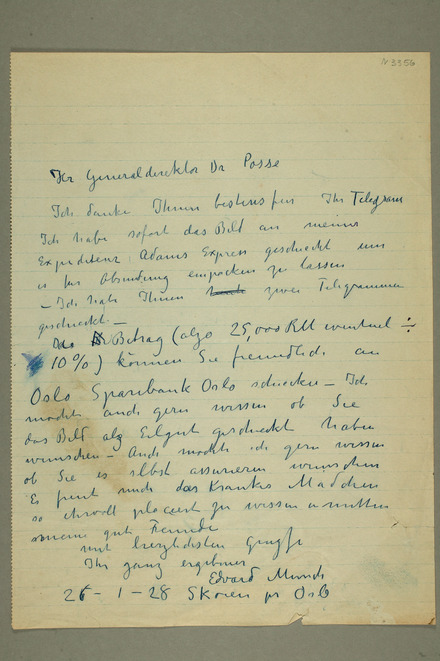 N 3356
Hr Generaldirektor Dr Posse
Ich danke Ihnen bestens für Ihr Telegram
Ich habe sofort das Bild an meinen
Expediteur Adams Express geschickt um
es für Absendung einpacken zu lassen
– Ich habe Ihnen zwei Telegrammen
geschickt. –
Betrag (also 25,000 RM eventuel ÷
10%) können Sie freundlich an
Oslo Sparebank Oslo schicken – Ich
möchte auch gern wissen ob Sie
das Bild als Eilgut geschickt haben
wünschen – Auch möchte ich gern wissen
ob Sie es selbst assurieren wünschen
Es freut mich das Krankes Mädchen
so ehrvoll placiert zu wissen inmitten
meine gute Freunde
mit herzlichsten Grüsse
Ihr ganz ergebener
Edvard Munch
26 – 1 – 28 Skøien pr Oslo